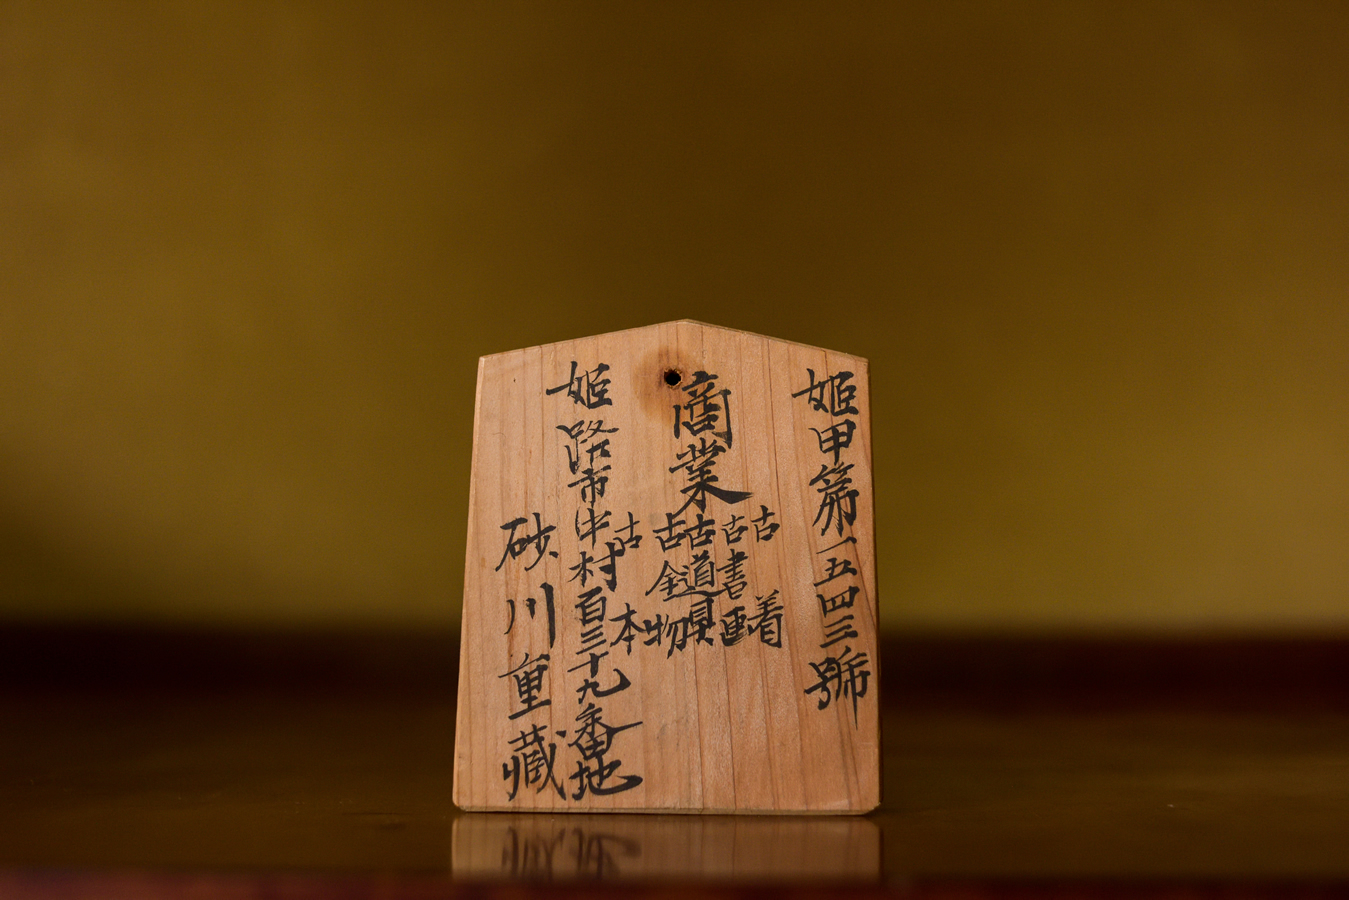 姫甲第一五四三號
商業
古着
古書画
古道具
古金物
古本
姫路市中村百三十九番地
砂川重藏